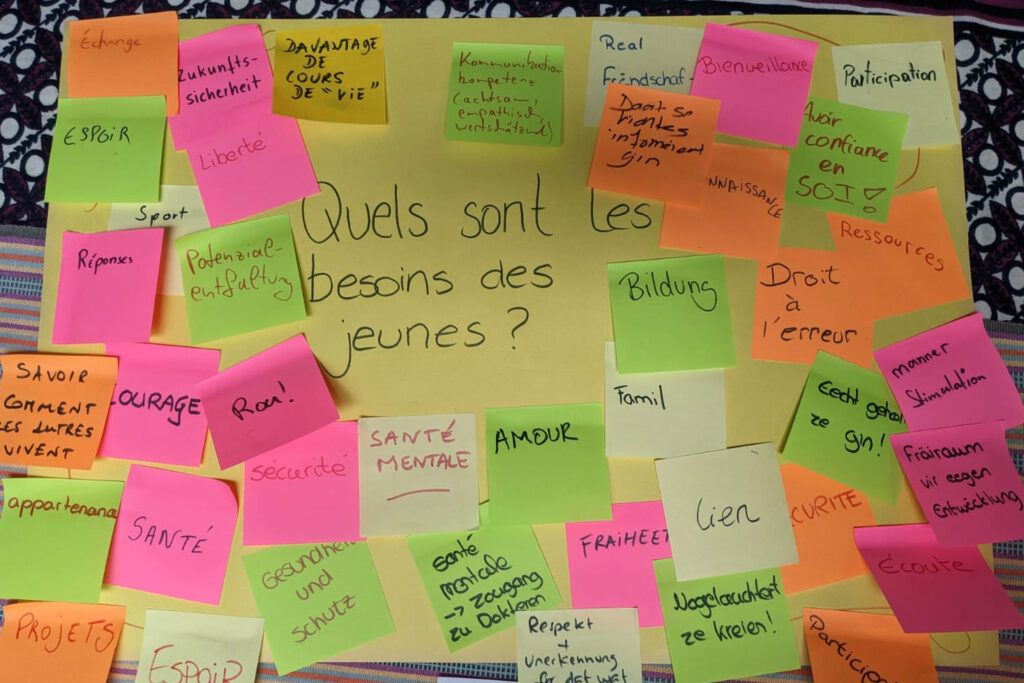 Échange
Zukunfts-
sicherheit
DAVANTAGE
DE
COURS
DE "VIE"
Kommunikations
kompetenz
(achtsam,
empathisch,
wertschätzend)
Real
Frëndschaf
Bienveillance
Participation
ESPOIR
Liberté
Doat se
richteg
informéiert
gin
NNAISSANCE
Avoir
confiance
en
SOI!
Sport
Quels sont les
besoins des
jeunes ?
Réponses
Potenzial-
entfaltung
Bildung
Droit
à
l'erreur
Ressources
SAVOIR
COMMENT
LES AUTRES
VIVENT
OURAGE
Rou!
Famil
Eecht gehai
ze gin!
manner
Stimulation
sécurité
SANTÉ
MENTALE
AMOUR
Lien
CURITÉ
Fräiraum
vir eegen
Entwécklung
appartenanc
SANTÉ
Gesundheit
und
schutz
santé
mentale
-> Zougang
zu Dokteren
FRAIHEET
Nogelauchtert
ze kreien!
Écoute
PROJETS
ESPOIR
Respekt
+
Unerkennung
fir dat wat
Participa